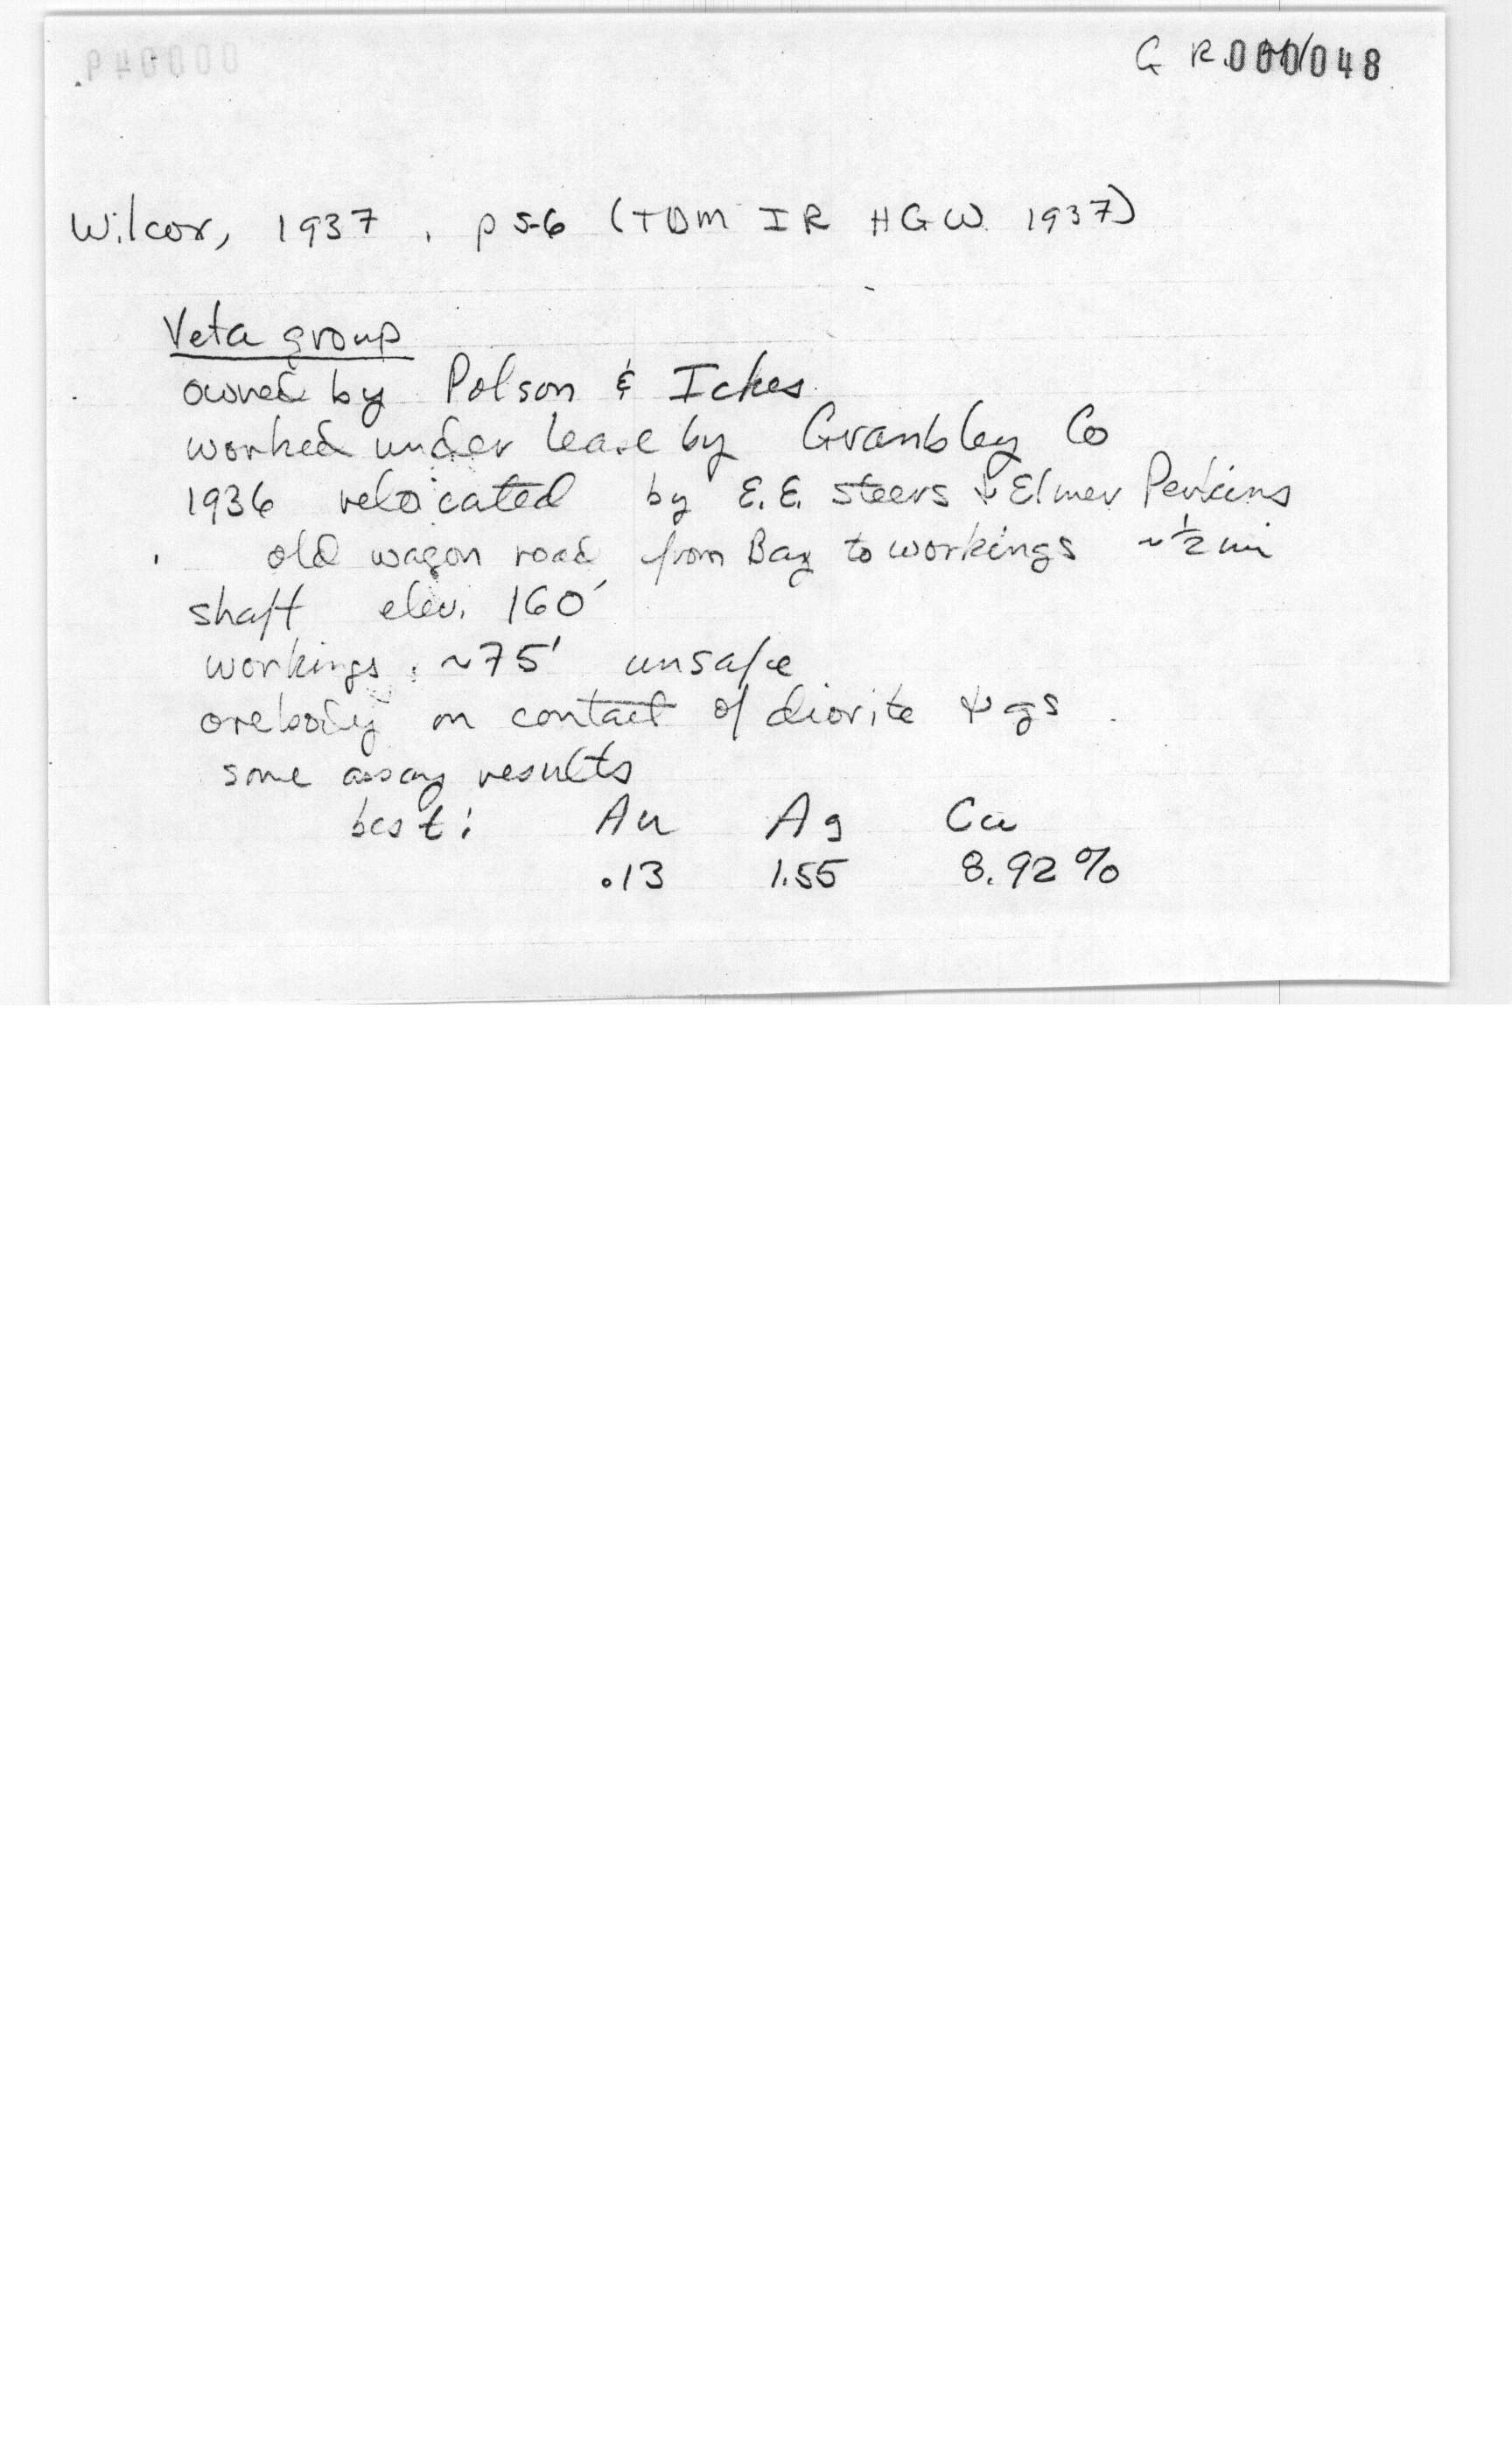 G R 000048
Wilcox, 1937, p 5-6 (TDM IR HGW 1937)
Veta group
owned by Polson & Ickes
worked under lease by Grambley Co
1936 relocated by E.E. Steers & Elmer Perkins
old wagon road from Bay to workings ~ 1/2 mi
shaft elev. 160'
workings: ~75' unsafe
orebody on contact of diorite & gs
some assay results
best: Au Ag Cu
.13 1.55 8.92%